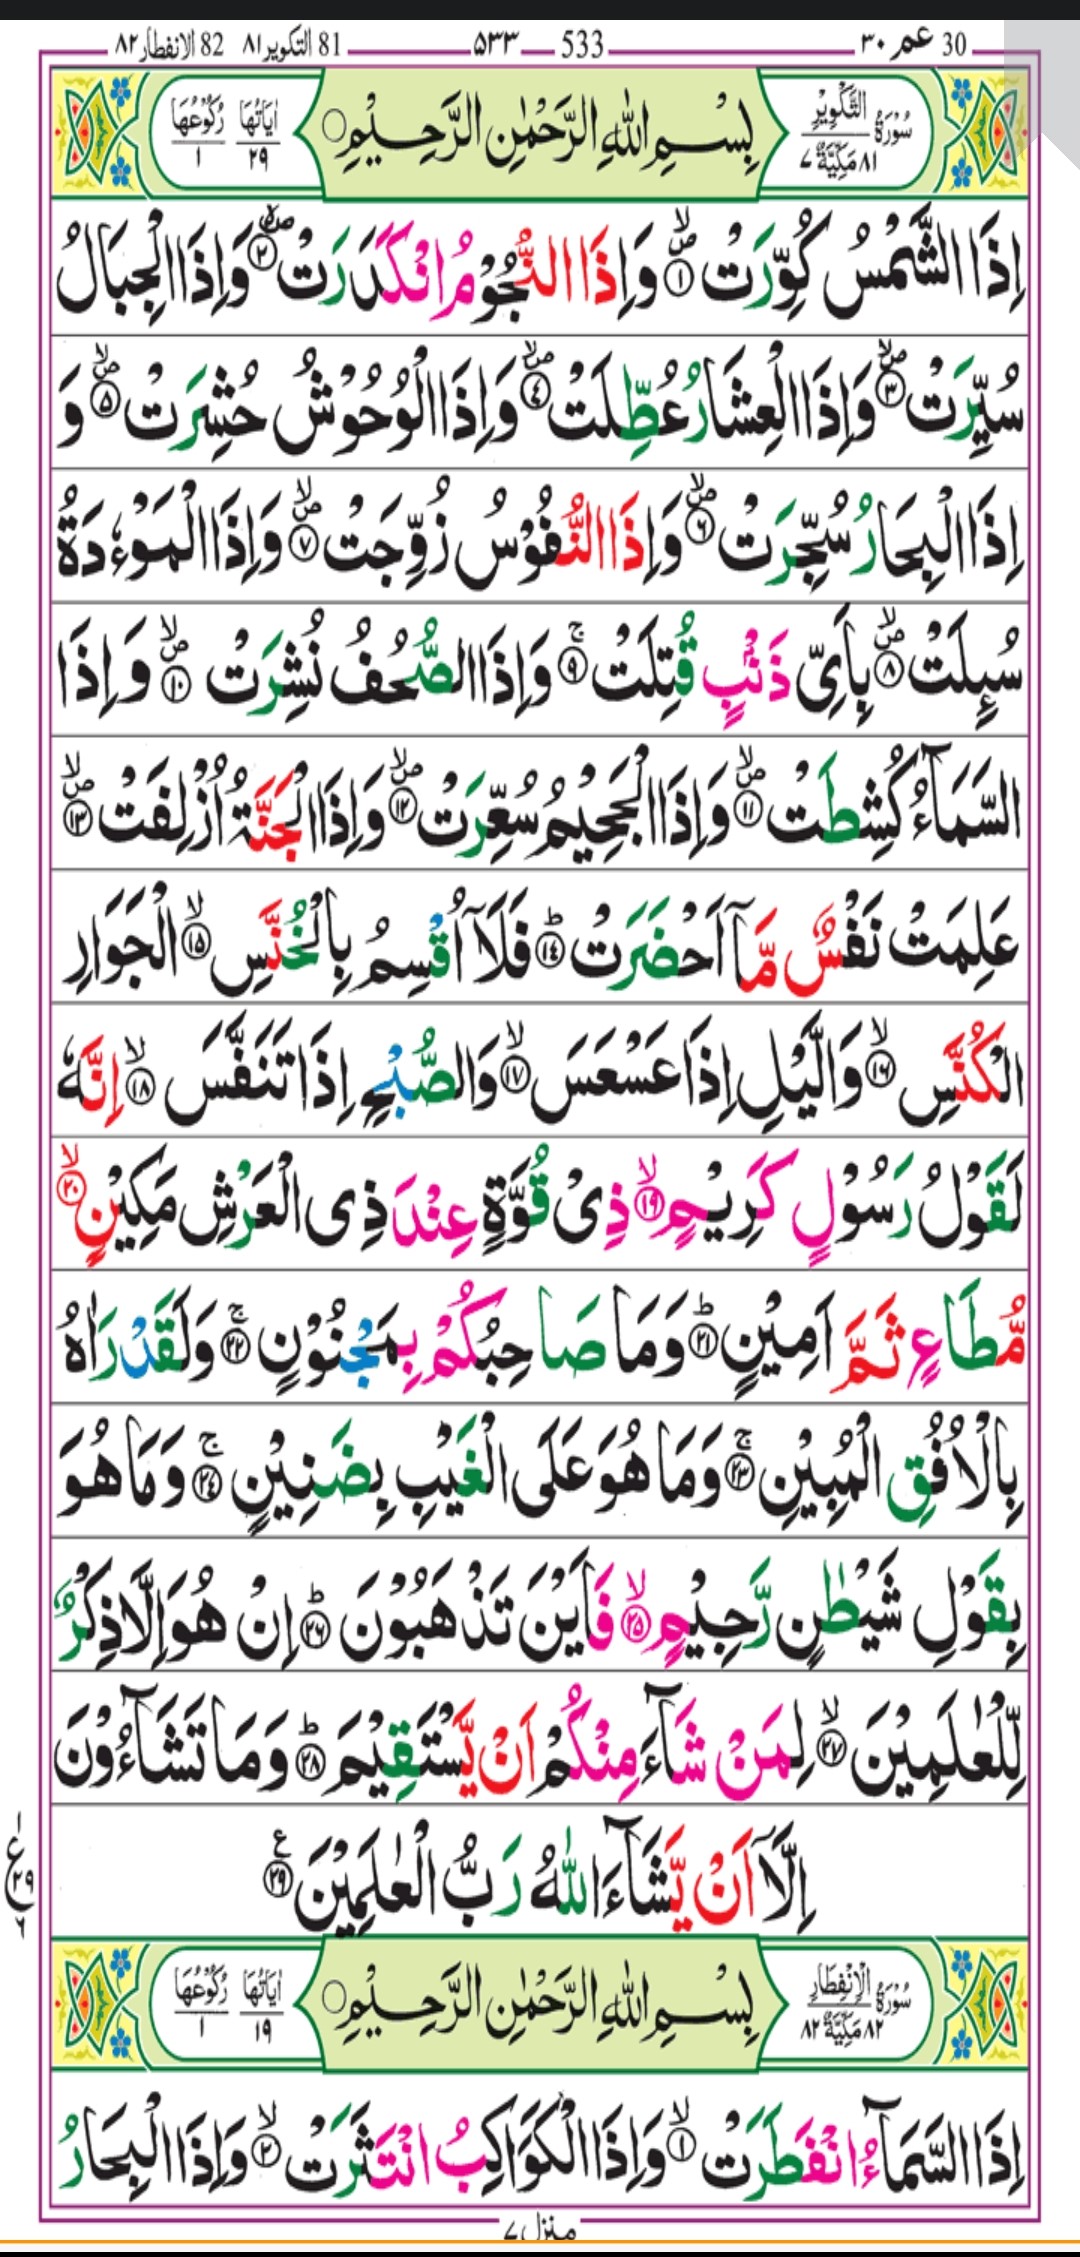 30 عم ۳۰ 533 ۵۳۳ 81 التكوير ۸۱ 82 الانفطار ۸۲
سُوْرَةُ التَّكْوِيْرِ ۸۱ مَكِّيَّةٌ ۷ بِسْمِ اللّٰهِ الرَّحْمٰنِ الرَّحِيْمِ○ اٰيَاتُهَا ۲۹ رُكُوْعُهَا ۱
اِذَا الشَّمْسُ كُوِّرَتْ ۪ۙ﴿۱﴾ وَاِذَا النُّجُوْمُ انْكَدَرَتْ ۪ۙ﴿۲﴾ وَاِذَا الْجِبَالُ
سُيِّرَتْ ۪ۙ﴿۳﴾ وَاِذَا الْعِشَارُ عُطِّلَتْ ۪ۙ﴿۴﴾ وَاِذَا الْوُحُوْشُ حُشِرَتْ ۪ۙ﴿۵﴾ وَ
اِذَا الْبِحَارُ سُجِّرَتْ ۪ۙ﴿۶﴾ وَاِذَا النُّفُوْسُ زُوِّجَتْ ۪ۙ﴿۷﴾ وَاِذَا الْمَوْءٗدَةُ
سُىِٕلَتْ ۪ۙ﴿۸﴾ بِاَىِّ ذَنْۢبٍ قُتِلَتْ ۚ﴿۹﴾ وَاِذَا الصُّحُفُ نُشِرَتْ ۪ۙ﴿۱۰﴾ وَاِذَا
السَّمَآءُ كُشِطَتْ ۪ۙ﴿۱۱﴾ وَاِذَا الْجَحِيْمُ سُعِّرَتْ ۪ۙ﴿۱۲﴾ وَاِذَا الْجَنَّةُ اُزْلِفَتْ ۪ۙ﴿۱۳﴾
عَلِمَتْ نَفْسٌ مَّاۤ اَحْضَرَتْ ؕ﴿۱۴﴾ فَلَاۤ اُقْسِمُ بِالْخُنَّسِ ۙ﴿۱۵﴾ الْجَوَارِ
الْكُنَّسِ ۙ﴿۱۶﴾ وَالَّيْلِ اِذَا عَسْعَسَ ۙ﴿۱۷﴾ وَالصُّبْحِ اِذَا تَنَفَّسَ ۙ﴿۱۸﴾ اِنَّهٗ
لَقَوْلُ رَسُوْلٍ كَرِيْمٍ ۙ﴿۱۹﴾ ذِىْ قُوَّةٍ عِنْدَ ذِى الْعَرْشِ مَكِيْنٍ ۙ﴿۲۰﴾
مُّطَاعٍ ثَمَّ اَمِيْنٍ ؕ﴿۲۱﴾ وَمَا صَاحِبُكُمْ بِمَجْنُوْنٍ ۚ﴿۲۲﴾ وَلَقَدْ رَاٰهُ
بِالْاُفُقِ الْمُبِيْنِ ۚ﴿۲۳﴾ وَمَا هُوَ عَلَى الْغَيْبِ بِضَنِيْنٍ ۚ﴿۲۴﴾ وَمَا هُوَ
بِقَوْلِ شَيْطٰنٍ رَّجِيْمٍ ۙ﴿۲۵﴾ فَاَيْنَ تَذْهَبُوْنَ ؕ﴿۲۶﴾ اِنْ هُوَ اِلَّا ذِكْرٌ
لِّلْعٰلَمِيْنَ ۙ﴿۲۷﴾ لِمَنْ شَآءَ مِنْكُمْ اَنْ يَّسْتَقِيْمَ ؕ﴿۲۸﴾ وَمَا تَشَآءُوْنَ
اِلَّاۤ اَنْ يَّشَآءَ اللّٰهُ رَبُّ الْعٰلَمِيْنَ ﴿۲۹﴾ ع
۱ ع ۲۹ ۶
سُوْرَةُ الْاِنْفِطَارِ ۸۲ مَكِّيَّةٌ ۸۲ بِسْمِ اللّٰهِ الرَّحْمٰنِ الرَّحِيْمِ○ اٰيَاتُهَا ۱۹ رُكُوْعُهَا ۱
اِذَا السَّمَآءُ انْفَطَرَتْ ۙ﴿۱﴾ وَاِذَا الْكَوَاكِبُ انْتَثَرَتْ ۙ﴿۲﴾ وَاِذَا الْبِحَارُ
منزل ۷